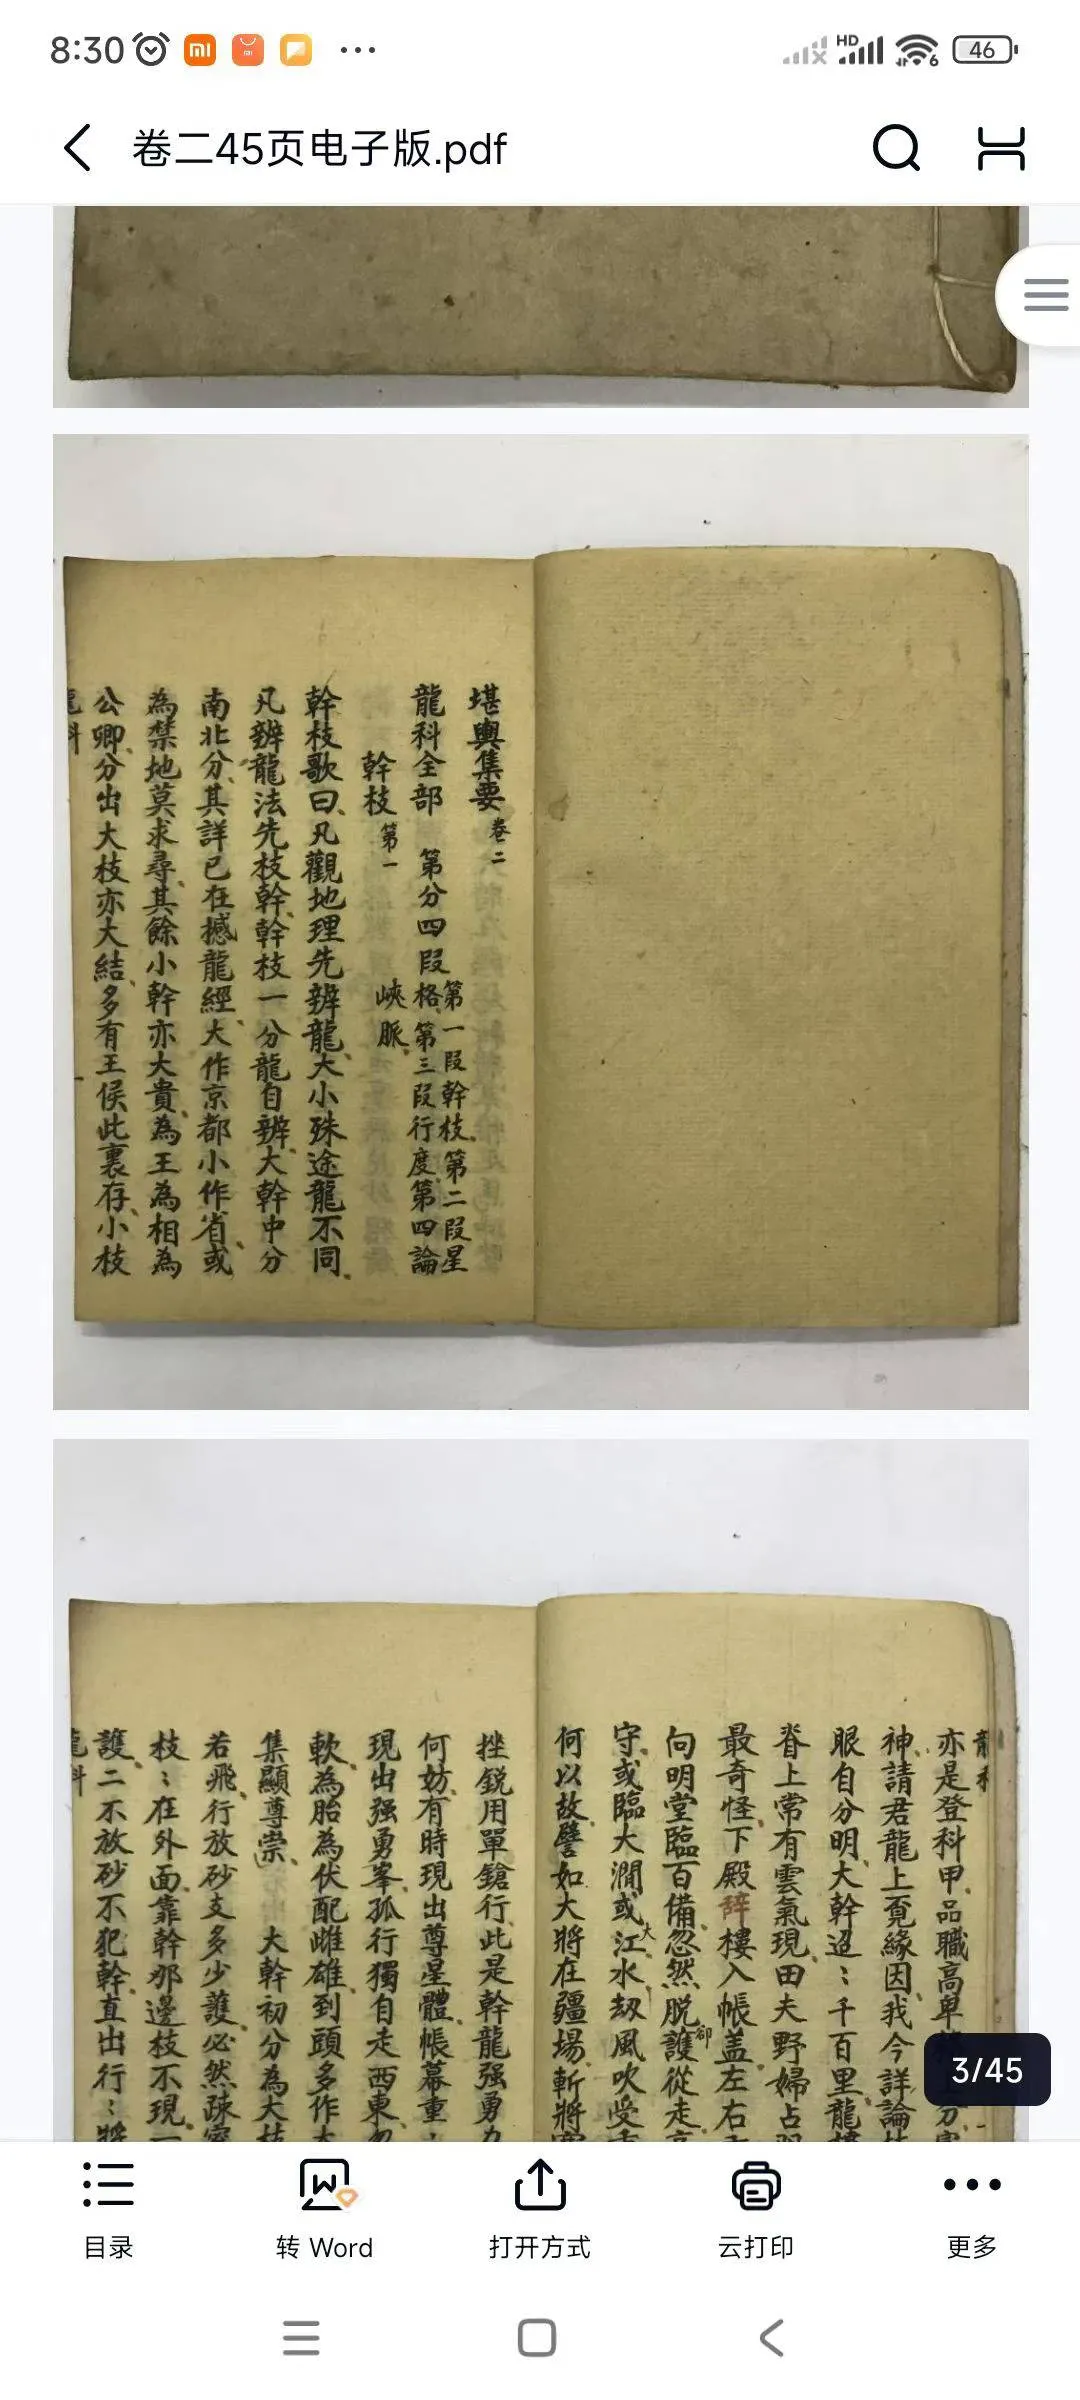 8:30
HD
6
46
卷二45页电子版.pdf
堪輿集要 卷二
龍科全部 第分四段 第一段幹枝、第二段星
格、第三段行度、第四論
峽脈、
幹枝 第一
幹枝歌曰、凡觀地理先辨龍、大小殊途龍不同、
凡辨龍法先枝幹、幹枝一分龍自辨、大幹中分
南北分、其詳已在撼龍經、大作京都小作省、或
為禁地莫求尋、其餘小幹亦大貴、為王為相為
公卿、分出大枝亦大結、多有王侯此裏存、小枝
龍科
亦是登科甲、品職高卑
神、請君龍上覓緣因、我今詳論
眼自分明、大幹迢〻千百里、龍樓
脊上常有雲氣現、田夫野婦占
最奇怪、下殿辞樓入帳盖、左右
向明堂臨百備、忽然脱護卻從走
守、或臨大澗或大江、水刼風吹受
何以故、譬如大將在疆場、斬將
挫鋭用單鎗行、此是幹龍强勇
何妨、有時現出尊星體、帳幕重
現出强勇峯、孤行獨自走西東、
軟、為胎為伏配雌雄、到頭多作
集顯尊崇、 大幹初分為大枝
若飛、行放砂支多少護、必然疎密
枝〻在外面靠幹、那邊枝不現、一
護、二不放砂不犯幹、直出行〻
龍科
3/45
目录
转 Word
打开方式
云打印
更多